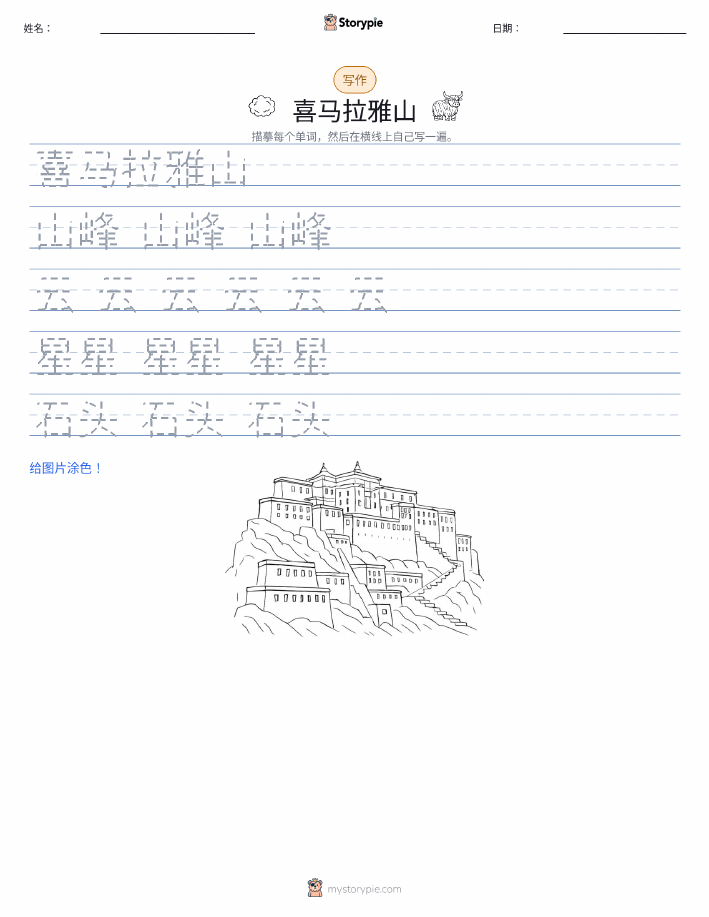 姓名：
Storypie
日期：
写作
喜马拉雅山
描摹每个单词，然后在横线上自己写一遍。
喜马拉雅山
山峰 山峰 山峰
云 云 云 云 云 云
星星 星星 星星
石头 石头 石头
给图片涂色！
mystorypie.com